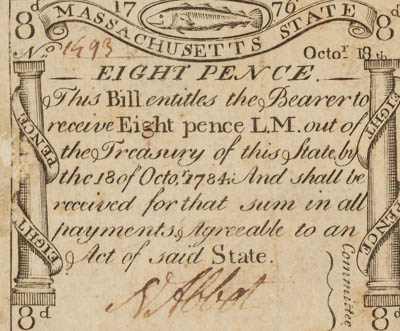 8d 17 76 8d
MASSACHUSETTS STATE
No. 1493 Octor. 18th.
EIGHT PENCE.
This Bill entitles the Bearer to
receive Eight pence L.M. out of
the Treasury of this State, by
the 18 of Octor. 1784. And shall be
received for that sum in all
payments, Agreeable to an
Act of said State.
N Abbot
Committee
EIGHT PENCE
EIGHT PENCE
8d 8d